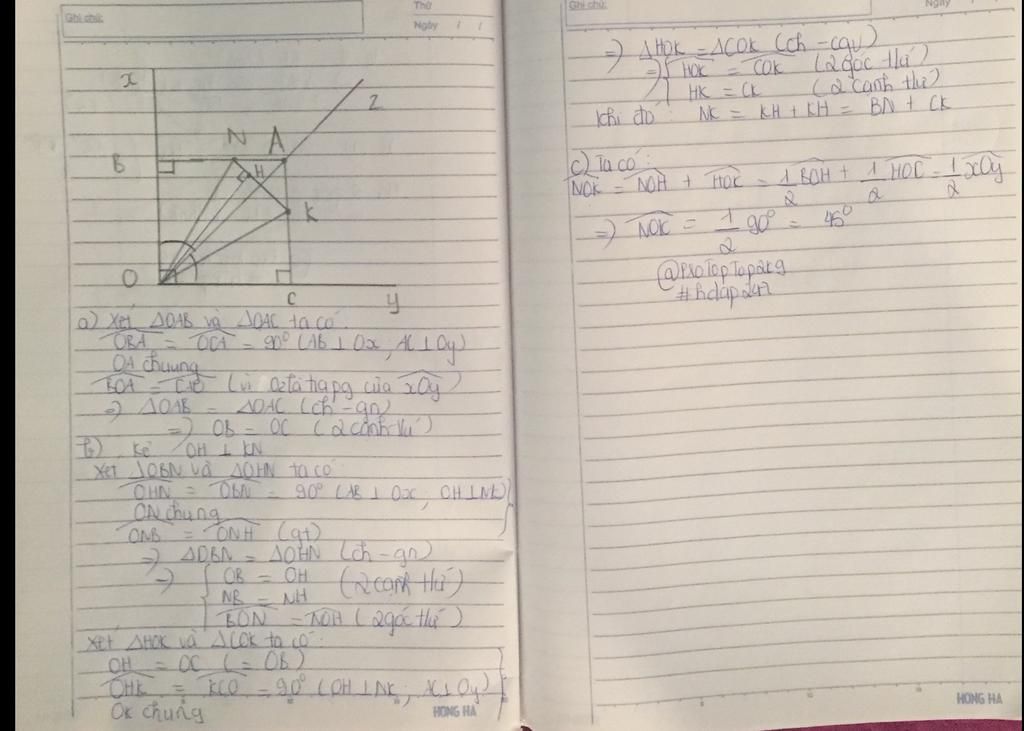 Ghi chú:
Thứ
Ngày / /
x
z
B
N
A
H
K
O
C
y
a) Xét ΔOAB và ΔOAC ta có:
OBA = OCA = 90° (AB ⊥ Ox, AC ⊥ Oy)
OA chung
BOA = (vì Oz là tia pg của xOy)
=) ΔOAB = ΔOAC (ch - gn)
=) OB = OC (2 cạnh tứ)
b) Kẻ OH ⊥ KN
Xét ΔOBN và ΔOHN ta có
OHN = OBN = 90° (AB ⊥ Ox, OH ⊥ NK)
ON chung
ONB = ONH (gt)
=) ΔOBN = ΔOHN (ch - gn)
=) { OB = OH (2 cạnh tứ)
NB = NH
BON = NOH (2 góc tứ)
Xét ΔHOK và ΔCOK ta có:
OH = OC (= OB)
OHK = KCO = 90° (OH ⊥ NK, AC ⊥ Oy)
OK chung
HONG HA
Ghi chú:
Ngày
=) ΔHOK = ΔCOK (ch - cgv)
=) { HOK = COK (2 góc tứ)
HK = CK (2 cạnh tứ)
Khi đó: NK = KH + KH = BN + CK
c) Ta có:
NOK = NOH + HOK = 1/2 BOH + 1/2 HOC = 1/2 xOy
=) NOK = 1/2 90° = 45°
#hdap247
HONG HA